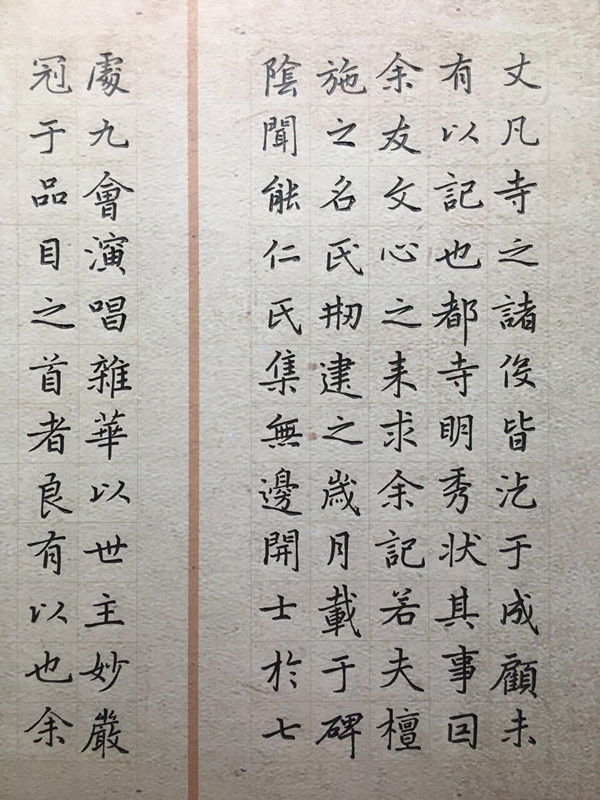 丈凡寺之諸役皆汔于成顧未
有以記也都寺明秀状其事囙
余友文心之来求余記若夫檀
施之名氏刱建之歳月載于碑
陰聞能仁氏集無邊開士於七
處九會演唱雜華以世主妙嚴
冠于品目之首者良有以也余